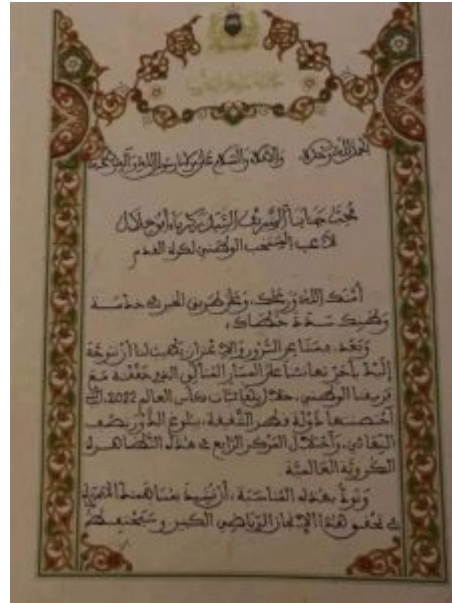 الحمد لله وحده والصلاة والسلام على مولانا رسول الله وآله وصحبه
محبنا جنابنا الشريف السيد زكرياء أبو خلال
لاعب المنتخب الوطني لكرة القدم
أمنك الله ورعاك، وعلى طريق الخير في خدمة
وطنك سدد خطاك؛
وبعد، فمن السرور والاعتزاز
إليك بأحر تهانئنا على المسار المثالي الذي حققته مع
فريقنا الوطني، خلال نهائيات كأس العالم 2022، التي
احتضنتها دولة قطر الشقيقة، ببلوغ الدور نصف
النهائي، واحتلال المركز الرابع في هذه التظاهرة
الكروية العالمية
ونود بهذه المناسبة، أن نشيد بمساهمتك
في تحقيق هذا الإنجاز الرياضي الكبير